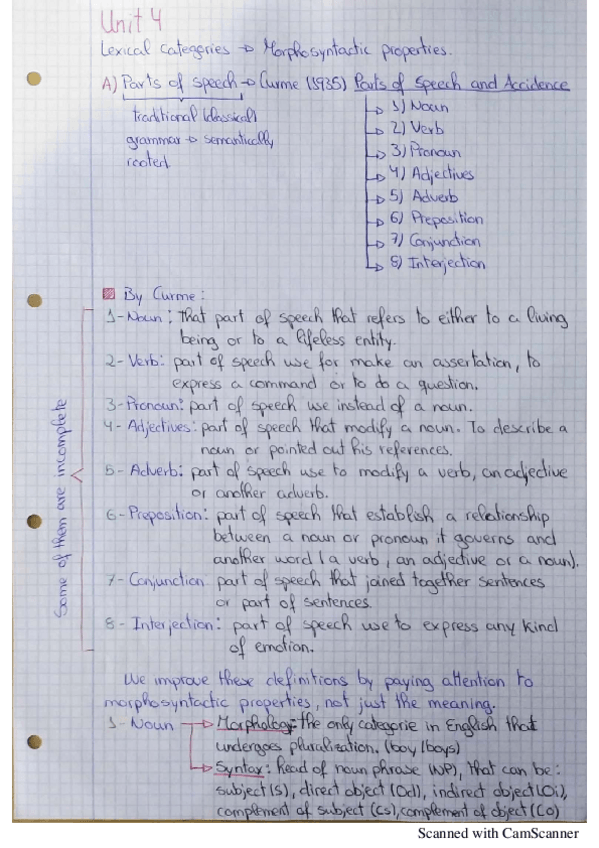 Unit 4
Lexical categories → Morphosyntactic properties.
A) Parts of speech → Curme (1935) Parts of Speech and Accidence
traditional (classical)
grammar → semantically
rooted.
1) Noun
2) Verb
3) Pronoun
4) Adjectives
5) Adverb
6) Preposition
7) Conjunction
8) Interjection
By Curme:
1- Noun: that part of speech that refers to either to a living
being or to a lifeless entity.
2- Verb: part of speech use for make an assertation, to
express a command or to do a question.
3- Pronoun: part of speech use instead of a noun.
4- Adjectives: part of speech that modify a noun. To describe a
noun or pointed out his references.
5- Adverb: part of speech use to modify a verb, an adjective
or another adverb.
6- Preposition: part of speech that establish a relationship
between a noun or pronoun it governs and
another word (a verb, an adjective or a noun).
7- Conjunction part of speech that joined together sentences
or part of sentences.
8- Interjection: part of speech use to express any kind
of emotion.
Some of them are incomplete
We improve these definitions by paying attention to
morphosyntactic properties, not just the meaning.
1- Noun → Morphology: the only categorie in English that
undergoes pluralization. (boy/boys)
→ Syntax: head of noun phrase (NP), that can be:
subject (S), direct object (Od), indirect object (Oi),
complement of subject (Cs), complement of object (Co)
Scanned with CamScanner